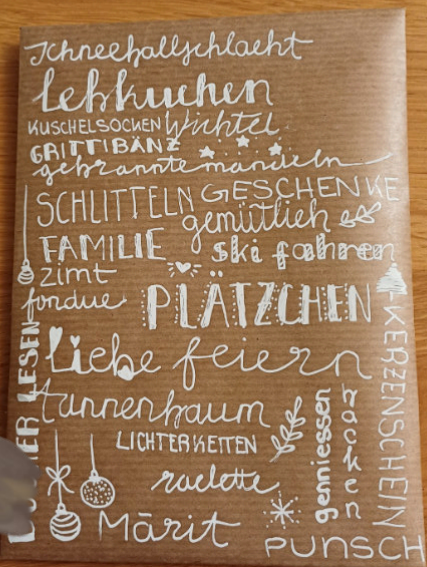 Schneeballschlacht
Lebkuchen
KUSCHELSOCKEN Wichtel
GRITTIBÄNZ
gebrannte mandeln
SCHLITTELN GESCHENKE
gemütlich
FAMILIE ski fahren
zimt
fondue PLÄTZCHEN
Liebe feiern
tannenbaum
LICHTERKETTEN
raclette
Märit
PUNSCH
genniessen
KERZENSCHEIN
LESEN